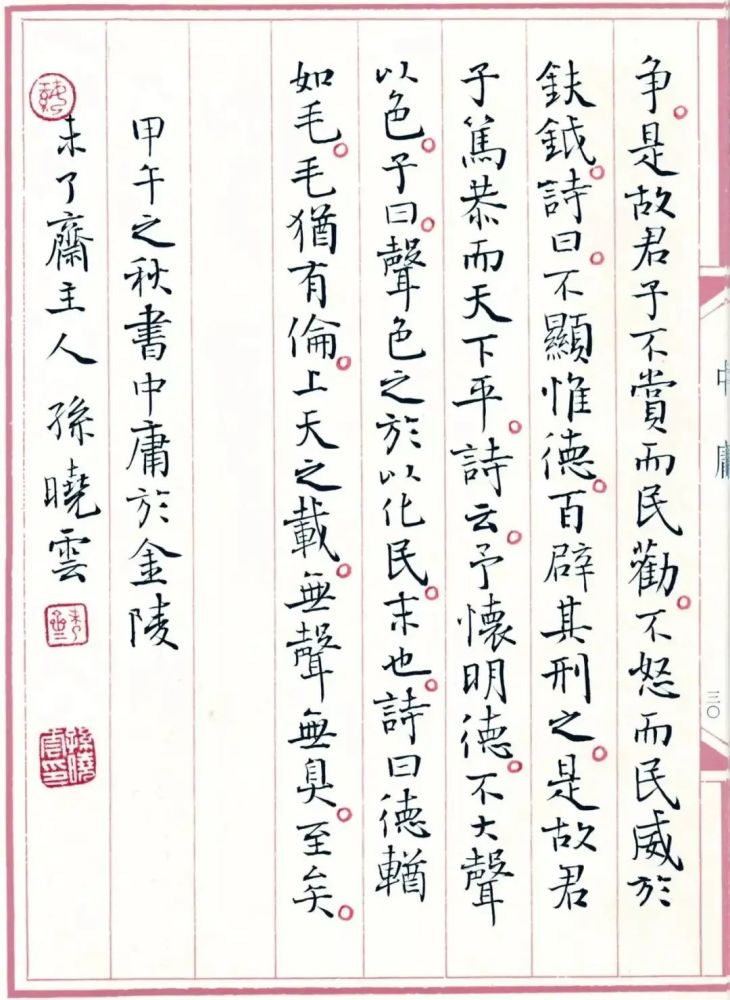 争。是故君子不賞而民勸。不怒而民威於
鈇鉞。詩曰。不顯惟德。百辟其刑之。是故君
子篤恭而天下平。詩云。予懷明德。不大聲
以色。子曰。聲色之於以化民。末也。詩曰德輶
如毛。毛猶有倫。上天之載。無聲無臭。至矣。
甲午之秋書中庸於金陵
未了齋主人 孫曉雲
孫曉雲印
中庸
三〇